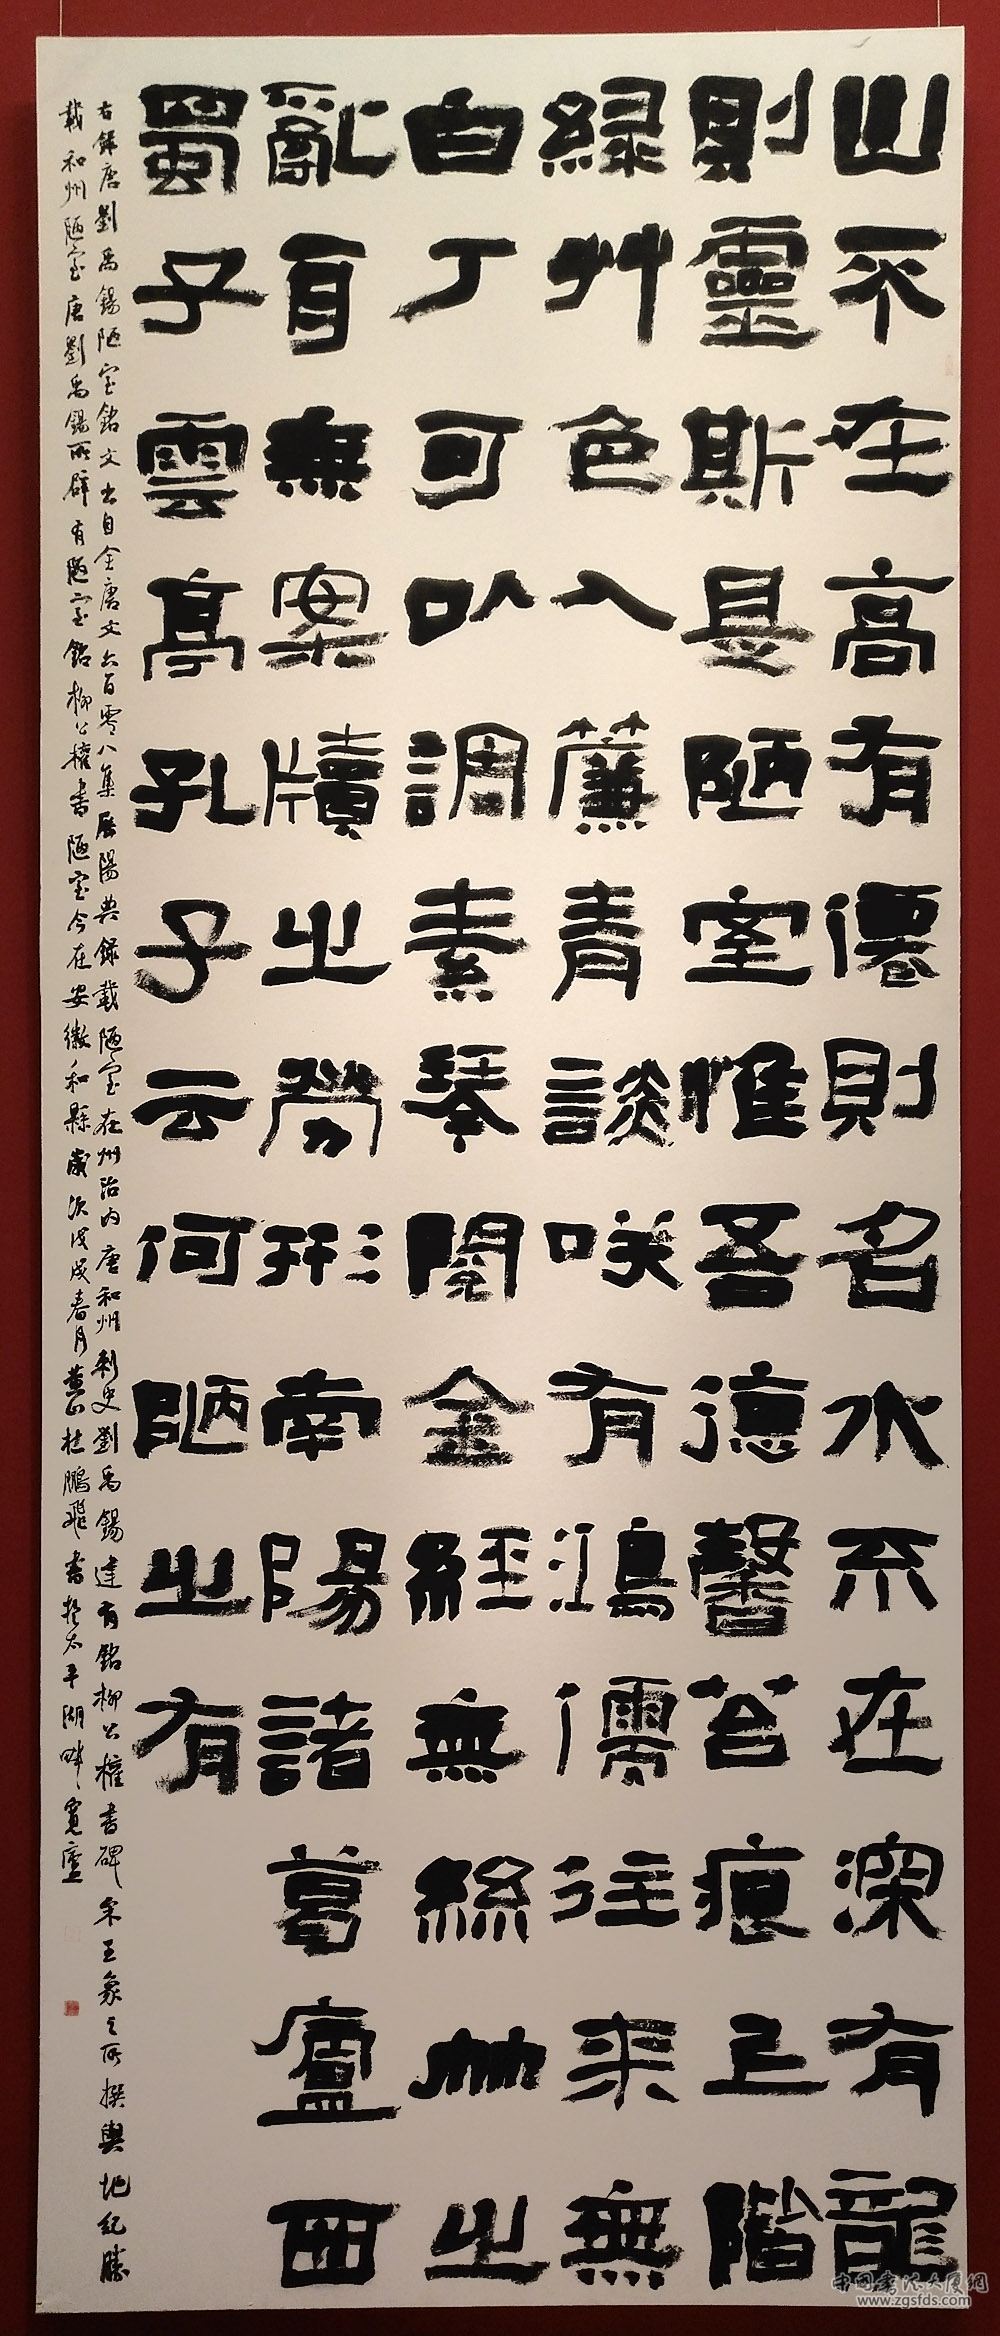 山不在高有德則名水不在深有龍
則靈斯是陋室惟吾德馨苔痕上階
緑艸色入簾青談咲有鴻儒往来無
白丁可以調素琴閲金經無絲竹之
亂耳無案牘之勞形南陽諸葛廬西
蜀子雲亭孔子云何陋之有
右錄唐劉禹錫陋室銘文出自全唐文六百零八集歷陽典録載陋室在州治内唐和州刺史劉禹錫建有銘柳公權書碑宋王象之所撰輿地紀勝
載和州陋室唐劉禹錫所辟有陋室銘柳公權書陋室今在安徽和縣歲次戊戌春月黄山杜鵬飛書於太平湖畔寬廬
www.zgsfds.com